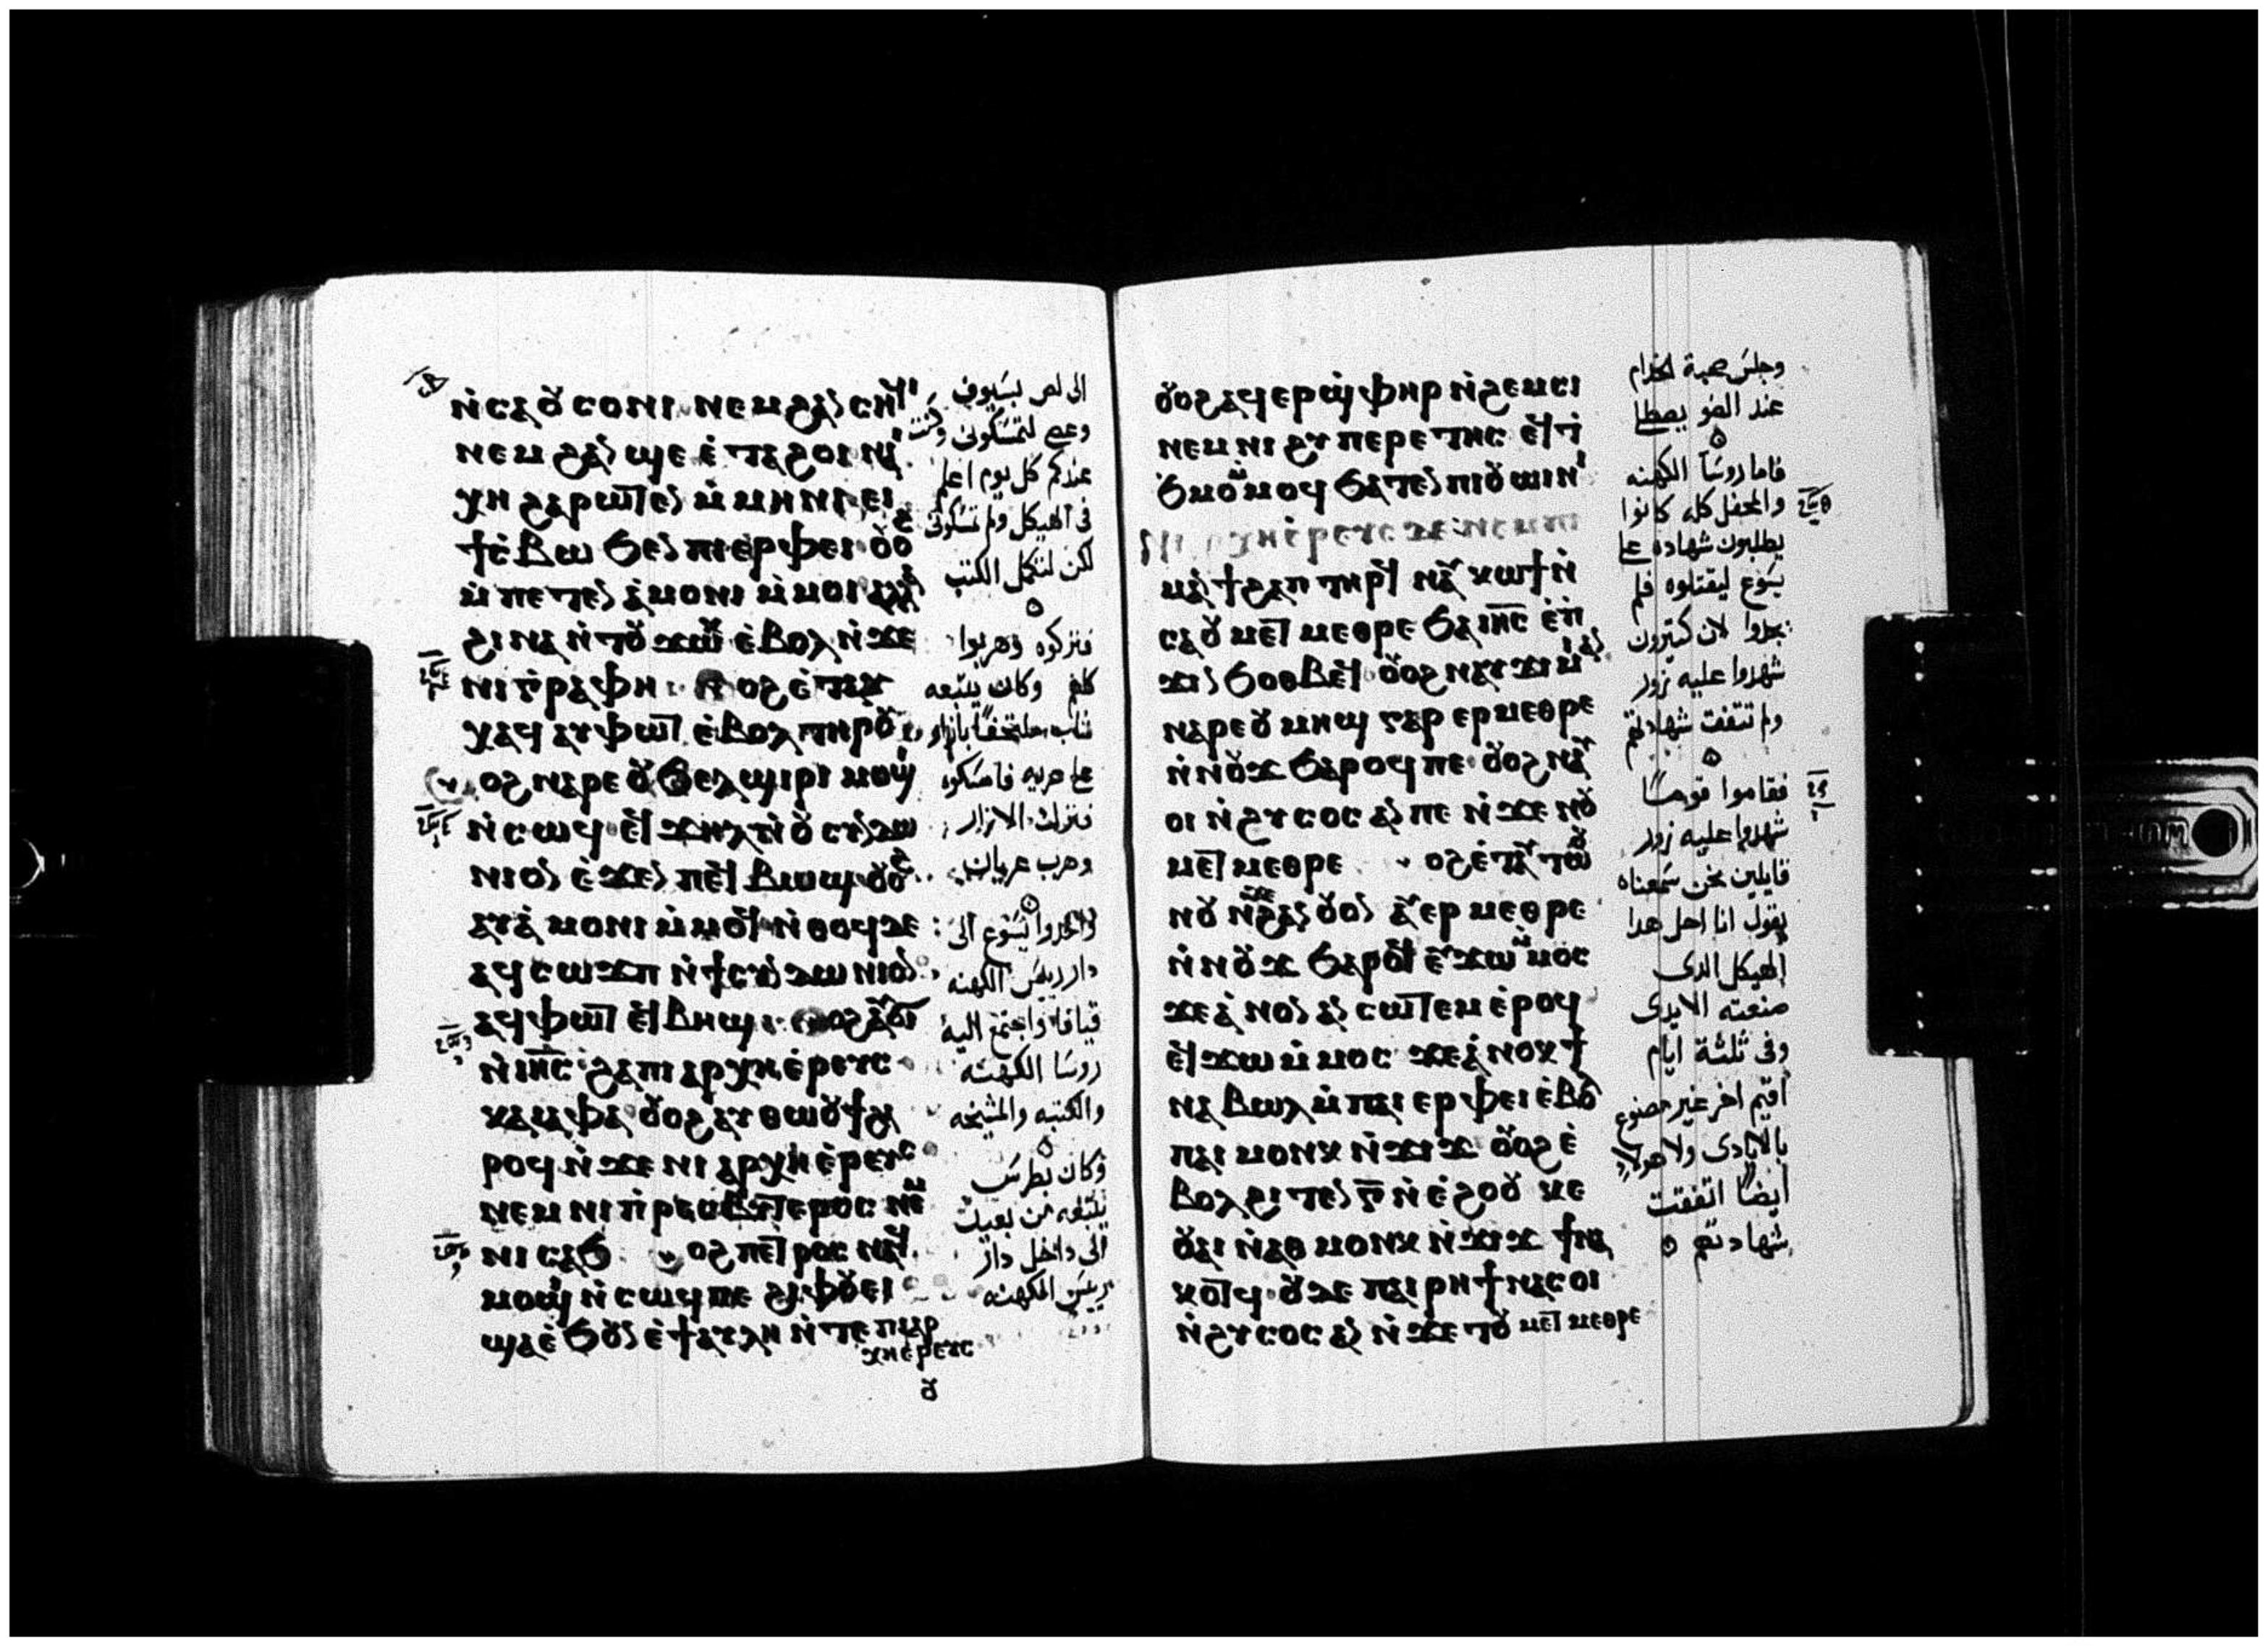 ⲛ̀ⲥⲁⲟⲩⲥⲟⲛⲓ ⲛⲉⲙ ϩⲁⲛⲥⲏϥⲓ
ⲛⲉⲙ ϩⲁⲛϣⲉ ⲉ̀ⲧⲁϩⲟⲓ ⲛⲁⲓ
ⲭⲏ ϩⲁⲣⲱⲧⲉⲛ ⲙ̀ⲙⲏⲛⲓ ⲉⲓ
ϯⲥ̀ⲃⲱ ϧⲉⲛ ⲡⲓⲉⲣⲫⲉⲓ ⲟⲩⲟϩ
ⲙ̀ⲡⲉⲧⲉⲛⲁ̀ⲙⲟⲛⲓ ⲙ̀ⲙⲟⲓ ⲁⲗⲗⲁ
ϩⲓⲛⲁ ⲛ̀ⲧⲟⲩϫⲱⲕ ⲉ̀ⲃⲟⲗ ⲛ̀ϫⲉ
ⲛⲓⲅ̀ⲣⲁⲫⲏ ⲟⲩⲟϩ ⲉ̀ⲧⲁⲩ
ⲭⲁϥ ⲁⲩⲫⲱⲧ ⲉ̀ⲃⲟⲗ ⲧⲏⲣⲟⲩ
ⲟⲩⲟϩ ⲛⲁⲣⲉ ⲟⲩϧⲉⲗϣⲓⲣⲓ ⲙⲟϣⲓ
ⲛ̀ⲥⲱϥ ⲉϥϫⲏⲗ ⲛ̀ⲟⲩⲥⲓⲛⲇⲱ
ⲛⲓⲟⲛ ⲉ̀ϫⲉⲛ ⲡⲉϥⲃⲱϣ ⲟⲩⲟϩ
ⲁⲩⲁ̀ⲙⲟⲛⲓ ⲙ̀ⲙⲟϥ ⲛ̀ⲑⲟϥ ⲇⲉ
ⲁϥⲥⲱϫⲡ ⲛ̀ϯⲥⲓⲛⲇⲱⲛⲓⲟⲛ
ⲁϥⲫⲱⲧ ⲉϥⲃⲏϣ ⲟⲩⲟϩ ⲁⲩϭⲓ
ⲛ̀ⲓⲏⲥ ϩⲁ ⲡⲓⲁⲣⲭⲏⲉ̀ⲣⲉⲩⲥ
ⲕⲁⲓⲁⲫⲁ ⲟⲩⲟϩ ⲁⲩⲑⲱⲟⲩϯ ϩⲁ
ⲣⲟϥ ⲛ̀ϫⲉ ⲛⲓⲁⲣⲭⲏⲉ̀ⲣⲉⲩⲥ
ⲛⲉⲙ ⲛⲓⲡ̀ⲣⲉⲥⲃⲩⲧⲉⲣⲟⲥ ⲛⲉⲙ
ⲛⲓⲥⲁϧ ⲟⲩⲟϩ ⲡⲉⲧⲣⲟⲥ ⲛⲁϥ
ⲙⲟϣⲓ ⲛ̀ⲥⲱϥ ⲡⲉ ϩⲓⲫⲟⲩⲉⲓ
ϣⲁ ⲉ̀ϧⲟⲩⲛ ⲉ̀ϯⲁⲩⲗⲏ ⲛ̀ⲧⲉ ⲡⲓⲁⲣ
ⲭⲏⲉⲣⲉⲩⲥ
الى لص بسيوف
وعصى لتمسكونى وكنت
عندكم كل يوم اعلم
فى الهيكل ولم تمسكونى
لكن لتكمل الكتب
فتركوه وهربوا
كلهم وكان يتبعه
شاب ملتحفا بازار
على عريه فامسكوه
فترك الازار
وهرب عريان
واخدوا يسوع الى
دار رييس الكهنه
قيافا واجتمع اليه
روسا الكهنه
والكتبه والمشيخه
وكان بطرس
يتبعه من بعيد
الى داخل دار
رييس الكهنه
ⲟⲩⲟϩ ⲁϥⲉⲣϣ̀ⲫⲏⲣ ⲛ̀ϩⲉⲙⲥⲓ
ⲛⲉⲙ ⲛⲓϩⲩⲡⲉⲣⲉⲧⲏⲥ ⲉϥϯ
ϧⲙⲟⲙ ⲙ̀ⲙⲟϥ ϧⲁⲧⲉⲛ ⲡⲓⲟⲩⲱⲓⲛⲓ
ⲛⲓⲁⲣⲭⲏⲉ̀ⲣⲉⲩⲥ ⲇⲉ ⲛⲉⲙ ⲡⲓ
ⲙⲁⲛ̀ϯϩⲁⲡ ⲧⲏⲣϥ ⲛⲁⲩⲕⲱϯ ⲛ̀
ⲥⲁ ⲟⲩⲙⲉⲧⲙⲉⲑⲣⲉ ϧⲁ ⲓⲏⲥ ⲉ̀ⲡ
ϫⲓⲛϧⲟⲑⲃⲉϥ ⲟⲩⲟϩ ⲛⲁⲩϫⲓⲙⲓ ⲁⲛ
ⲛⲁⲣⲉ ⲟⲩⲙⲏϣ ⲅⲁⲣ ⲉⲣⲙⲉⲑⲣⲉ
ⲛ̀ⲛⲟⲩϫ ϧⲁⲣⲟϥ ⲡⲉ ⲟⲩⲟϩ ⲛⲁⲩ
ⲟⲓ ⲛ̀ϩⲩⲥⲟⲥ ⲁⲛ ⲡⲉ ⲛ̀ϫⲉ ⲛⲟⲩ
ⲙⲉⲧⲙⲉⲑⲣⲉ ⲟⲩⲟϩ ⲉ̀ⲧⲁⲩⲧⲱⲟⲩ
ⲛⲟⲩ ⲛ̀ϫⲉ ϩⲁⲛⲟⲩⲟⲛ ⲁⲩⲉⲣⲙⲉⲑⲣⲉ
ⲛ̀ⲛⲟⲩϫ ϧⲁⲣⲟϥ ⲉⲩϫⲱ ⲙ̀ⲙⲟⲥ
ϫⲉ ⲁ̀ⲛⲟⲛ ⲁⲛⲥⲱⲧⲉⲙ ⲉ̀ⲣⲟϥ
ⲉϥϫⲱ ⲙ̀ⲙⲟⲥ ϫⲉ ⲁ̀ⲛⲟⲕ ϯ
ⲛⲁⲃⲱⲗ ⲙ̀ⲡⲁⲓⲉⲣⲫⲉⲓ ⲉ̀ⲃⲟⲗ
ⲡⲁⲓⲙⲟⲩⲛⲕ ⲛ̀ϫⲓϫ ⲟⲩⲟϩ ⲉ̀
ⲃⲟⲗ ϩⲓⲧⲉⲛ ⲅ̅ ⲛ̀ⲉ̀ϩⲟⲟⲩ ⲕⲉ
ⲟⲩⲁⲓ ⲛ̀ⲁⲑⲙⲟⲩⲛⲕ ⲛ̀ϫⲓϫ ϯⲛⲁ
ⲕⲟⲧϥ ⲟⲩⲇⲉ ⲡⲁⲓⲣⲏϯ ⲛⲁⲥⲟⲓ
ⲛ̀ϩⲩⲥⲟⲥ ⲁⲛ ⲛ̀ϫⲉ ⲧⲟⲩⲙⲉⲧⲙⲉⲑⲣⲉ
وجلس صحبة الخدام
عند الضو يصطلى
فاما روسا الكهنه
والمحفل كله كانوا
يطلبون شهاده على
يسوع ليقتلوه فلم
يجدوا لان كتيرون
شهدوا عليه زور
ولم تتفق شهادتهم
فقاموا قوما
شهدوا عليه زور
قايلين نحن سمعناه
يقول انا احل هدا
الهيكل الدى
صنعته الايدى
وفى ثلثة ايام
اقيم اخر غير مصنوع
بالايادى ولا هولاء
ايضا اتفقت
شهادتهم